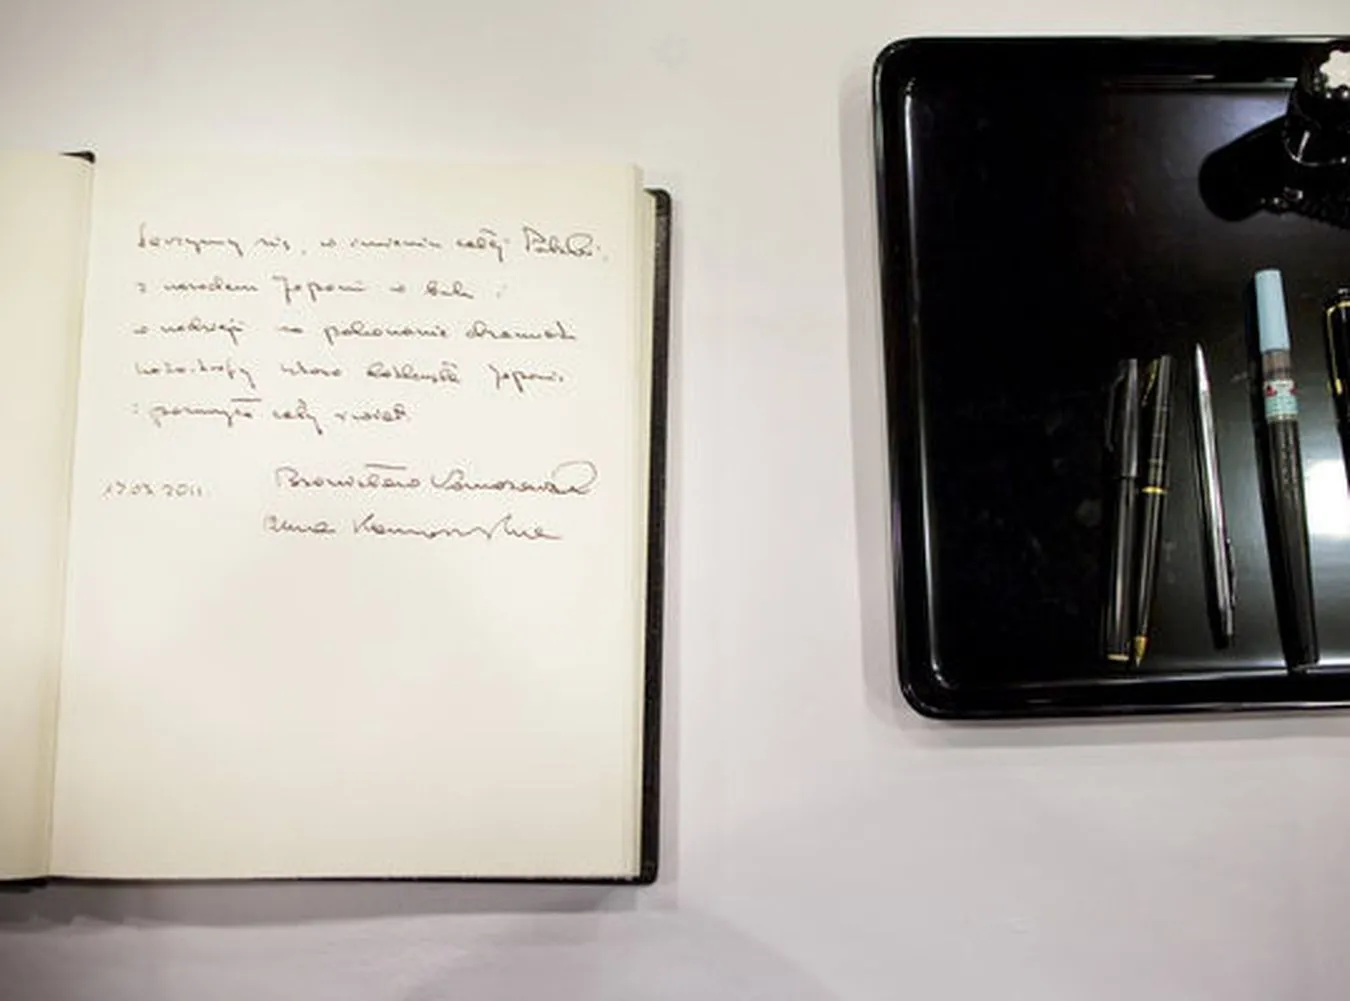 Łączymy się, w imieniu całej Polski,
z narodem Japonii w bólu i
w nadziei na pokonanie skutków
katastrofy która dotknęła Japonię
i poruszyła cały świat.
17.03.2011. Bronisław Komorowski
Anna Komorowska